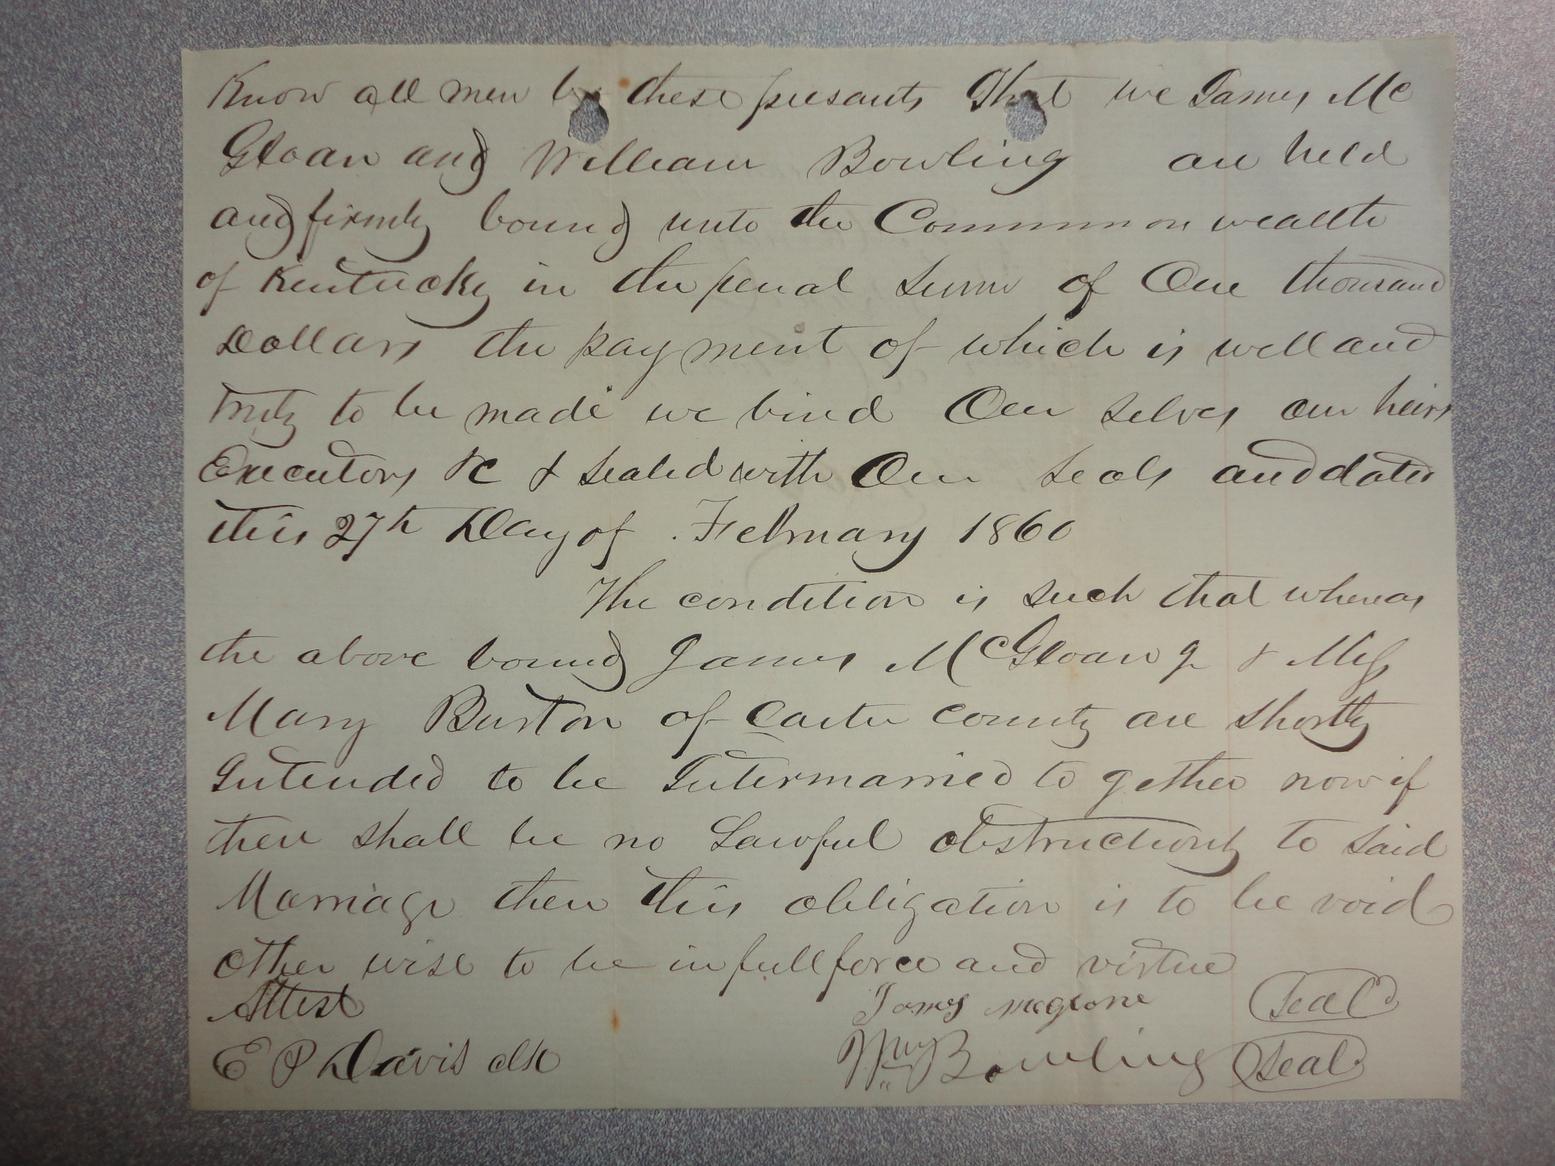 Know all men by these presants That we James Mc
Gloan and William Bowling are held
and firmly bound unto the Common wealth
of Kentucky in the penal sum of One thousand
Dollars the payment of which is well and
truly to be made we bind Our selves our heirs
Executors &c & sealed with Our seals and dated
this 27th Day of February 1860
The condition is such that whereas
the above bound James McGloan & Miss
Mary Burton of Carter county are shortly
Intended to be Intermarried to gether now if
there shall be no Lawful obstructions to said
Marriage then this obligation is to be void
other wise to be in full force and virtue
Attest James mcglone Seal
E P Davis clk Wm Bowling Seal